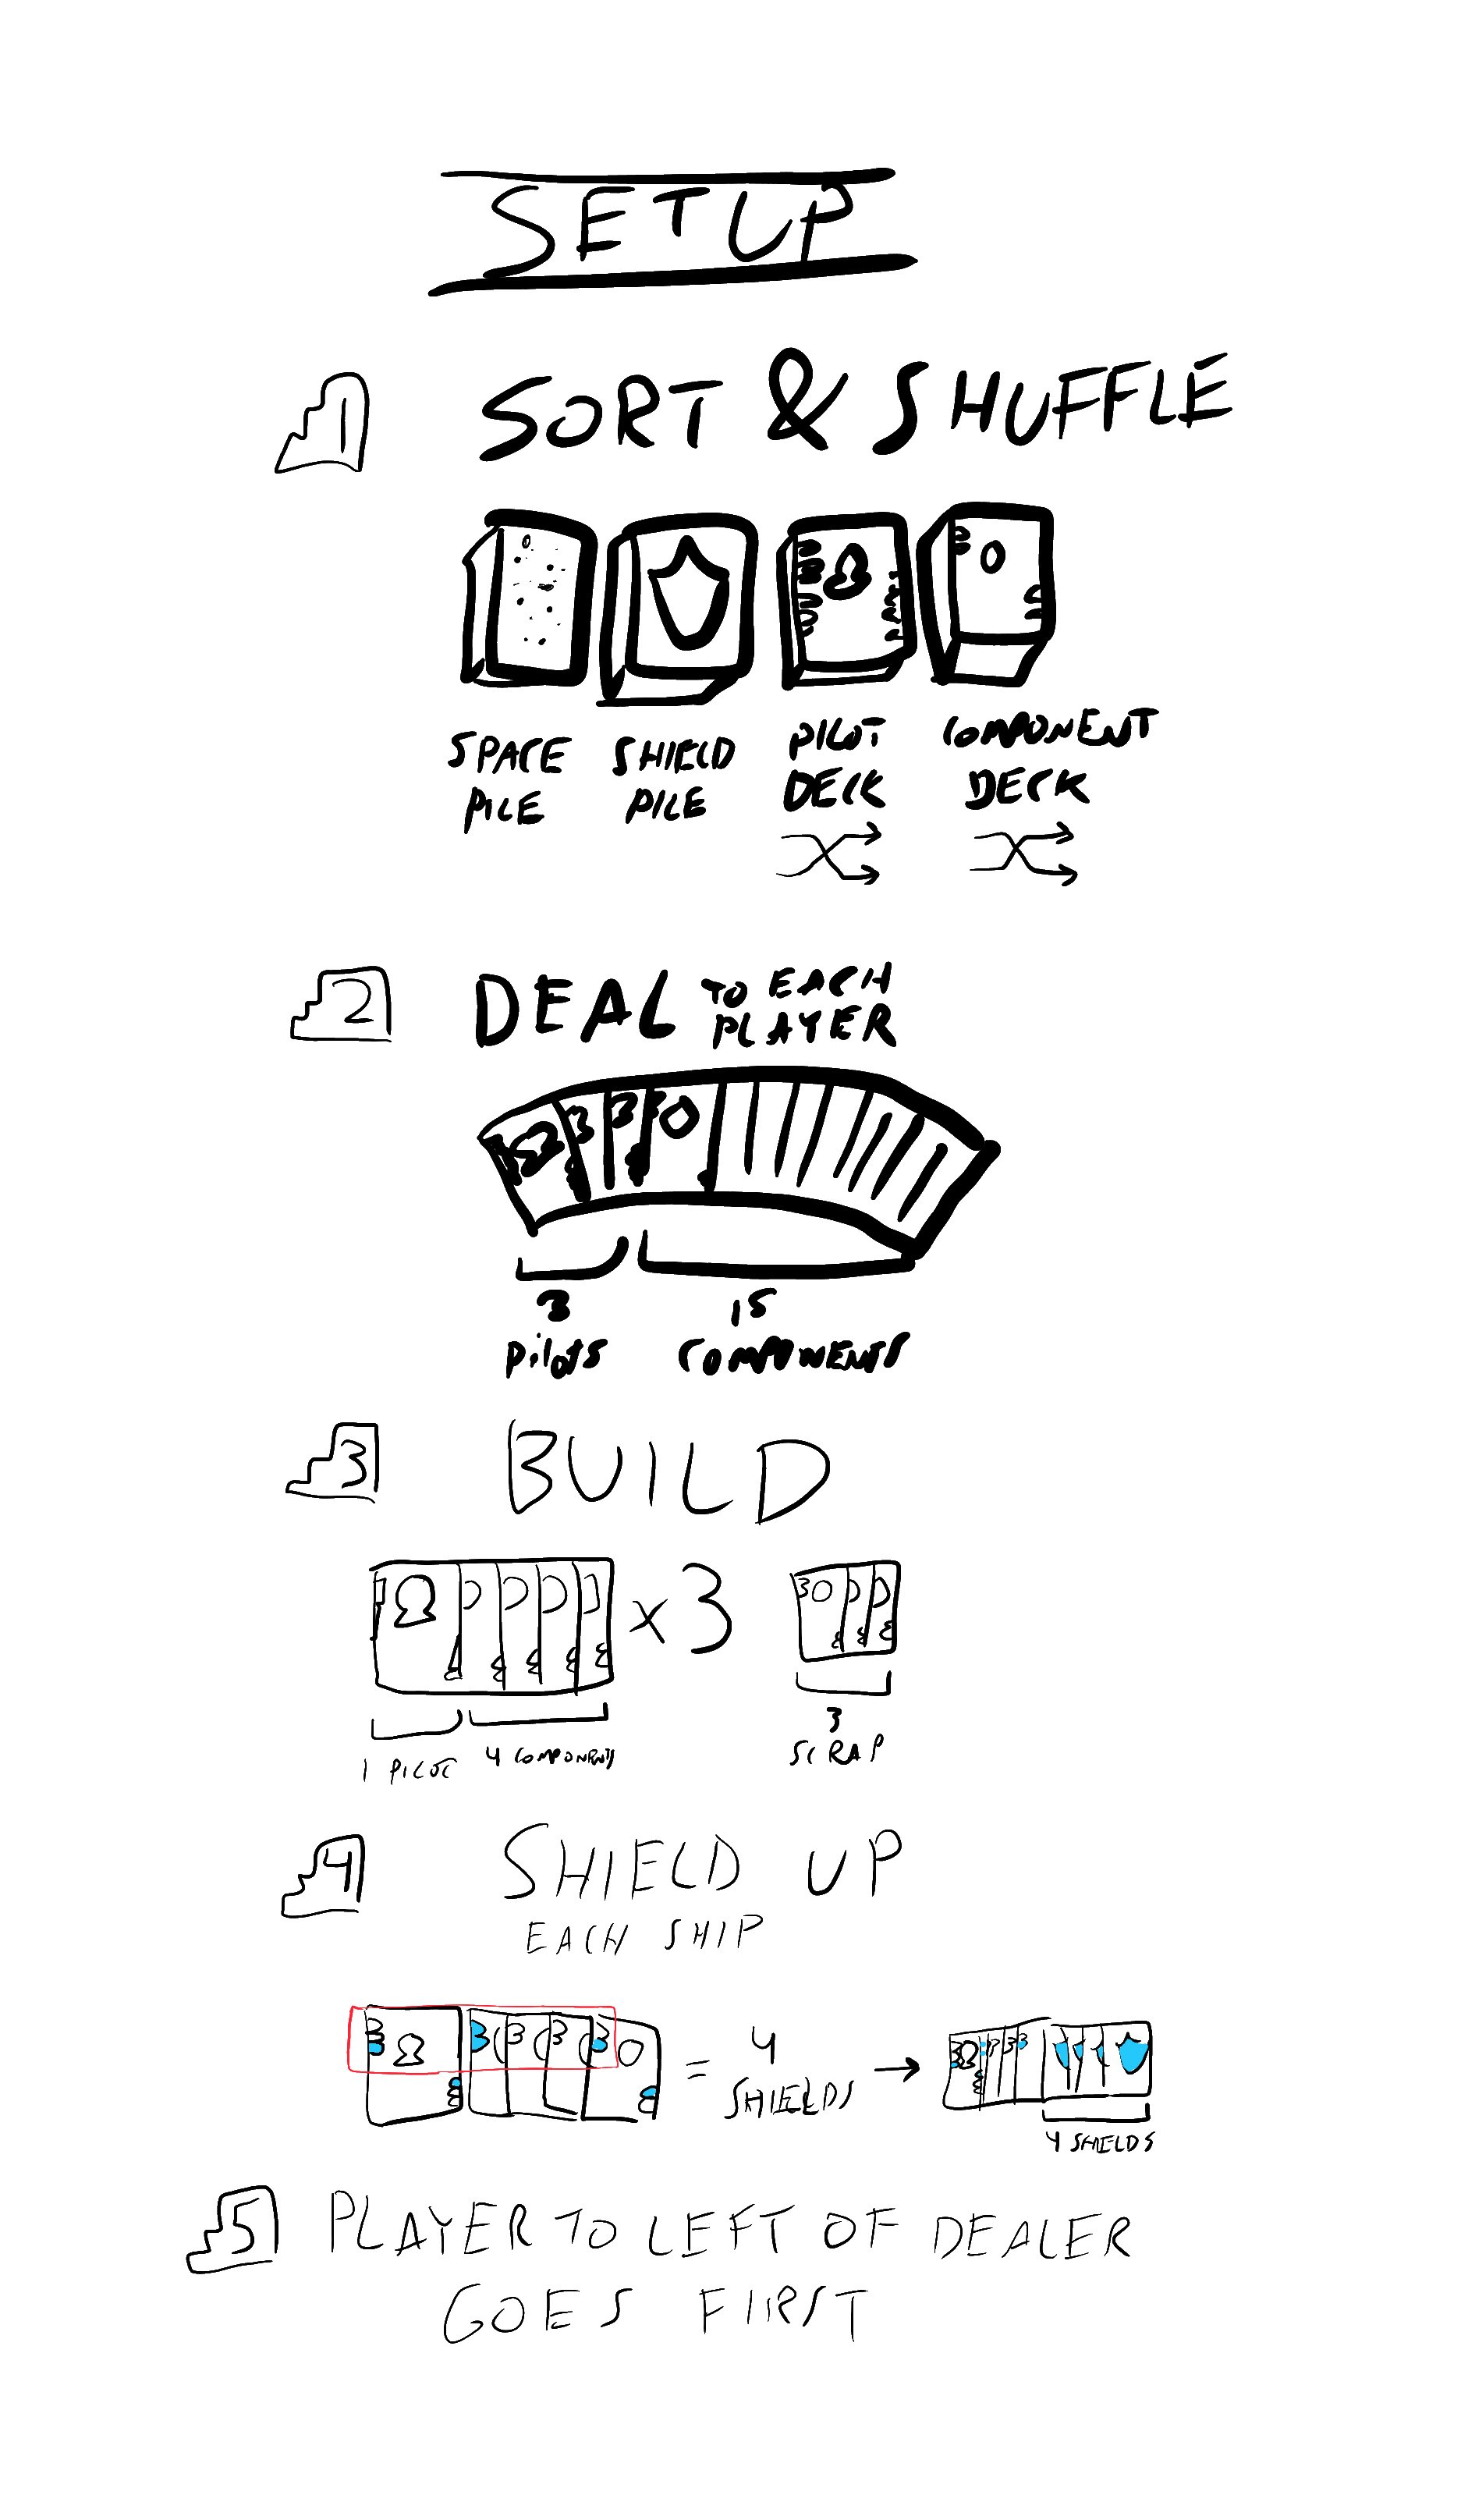 SETUP
1 SORT & SHUFFLE
SPACE PILE
SHIELD PILE
PILOT DECK
COMPONENT DECK
2 DEAL TO EACH PLAYER
3 PILOTS
15 COMPONENTS
3 BUILD
x3
1 PILOT
4 COMPONENTS
3 SCRAP
4 SHIELD UP
EACH SHIP
= 4 SHIELDS →
4 SHIELDS
5 PLAYER TO LEFT OF DEALER
GOES FIRST